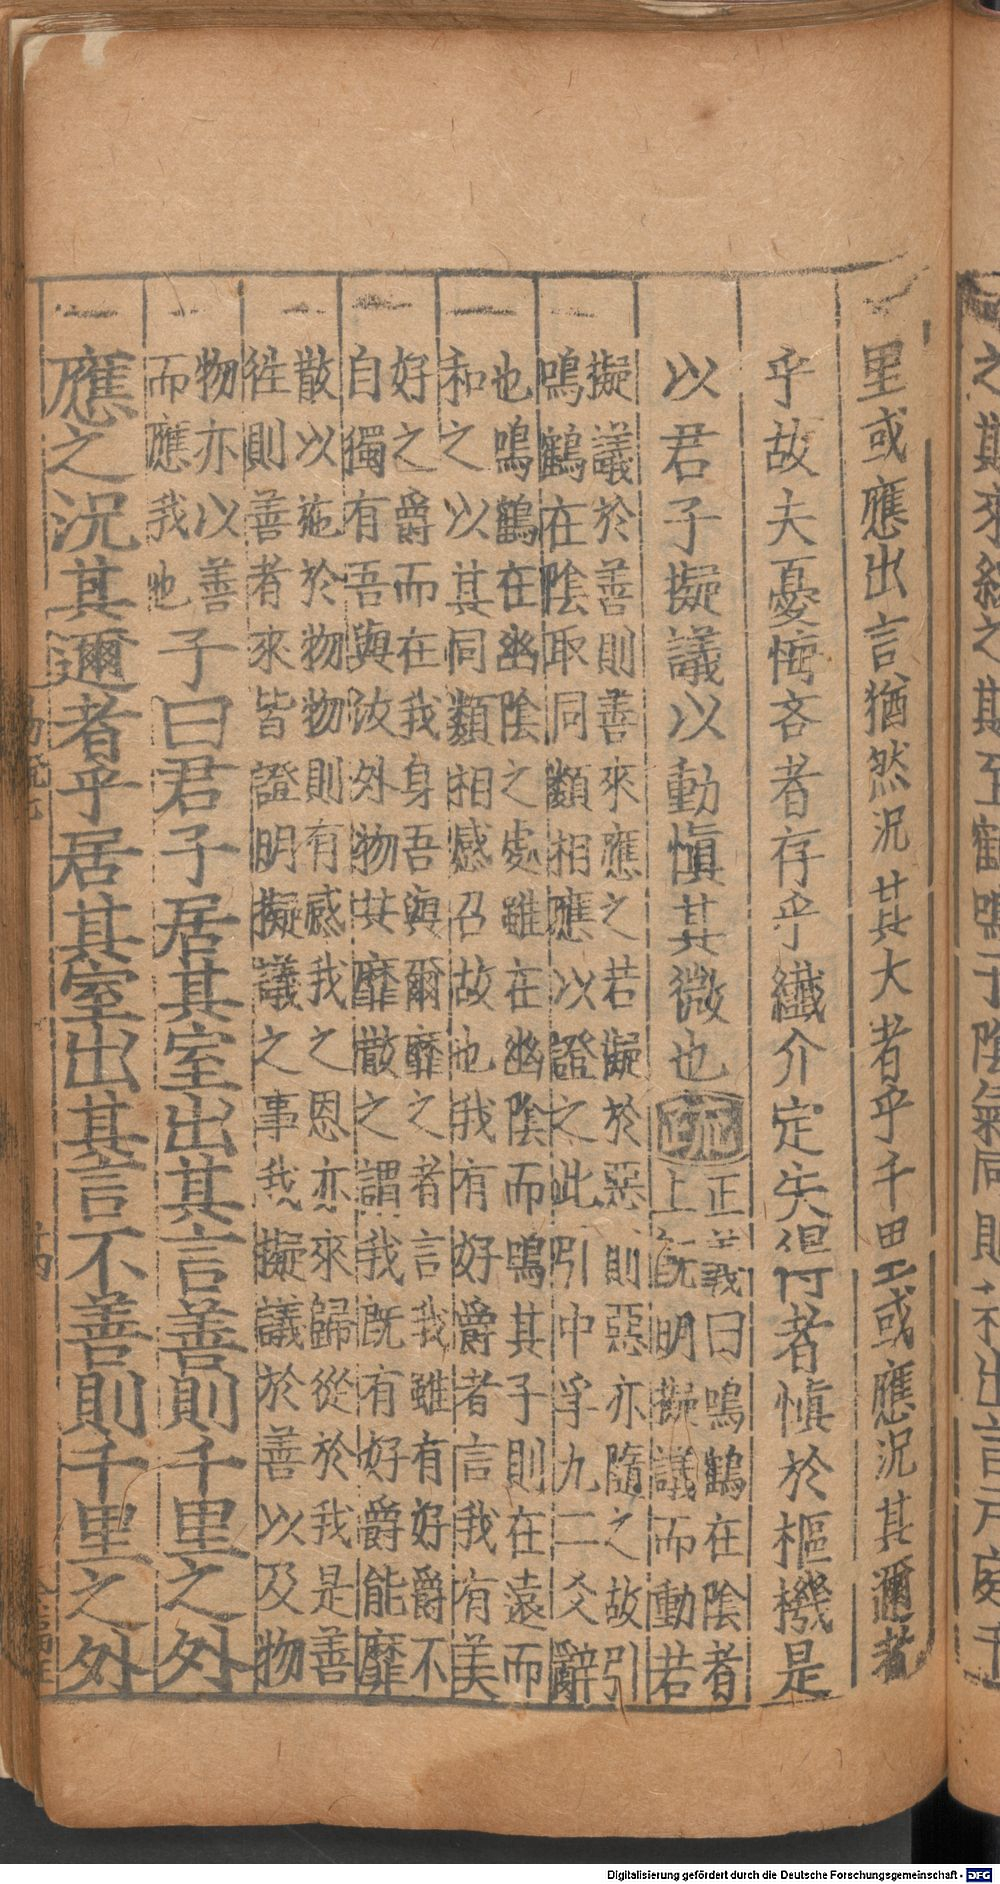 里或應出言猶然況其大者乎千里或應況其邇者
乎故夫憂悔吝者存乎纖介定失得者慎於樞機是
以君子擬議以動慎其微也疏正義曰鳴鶴在陰者
上既明擬議而動若
擬議於善則善來應之若擬於惡則惡亦隨之故引
鳴鶴在陰取同類相應以證之此引中孚九二爻辭
也鳴鶴在幽陰之處雖在幽陰而鳴其子則在遠而
和之以其同類相感召故也我有好爵者言我有美
好之爵而在我身吾與爾靡之者言我雖有好爵不
自獨有吾與汝外物共靡散之謂我既有好爵能靡
散以施於物物則有感我之恩亦來歸從於我是善
徃則善者來皆證明擬議之事我擬議於善以及物
物亦以善
而應我也
子曰君子居其室出其言善則千里之外
應之況其邇者乎居其室出其言不善則千里之外
之期來緩之斯至鶴鳴于陰氣同則和出言戶庭千
Digitalisierung gefördert durch die Deutsche Forschungsgemeinschaft - DFG